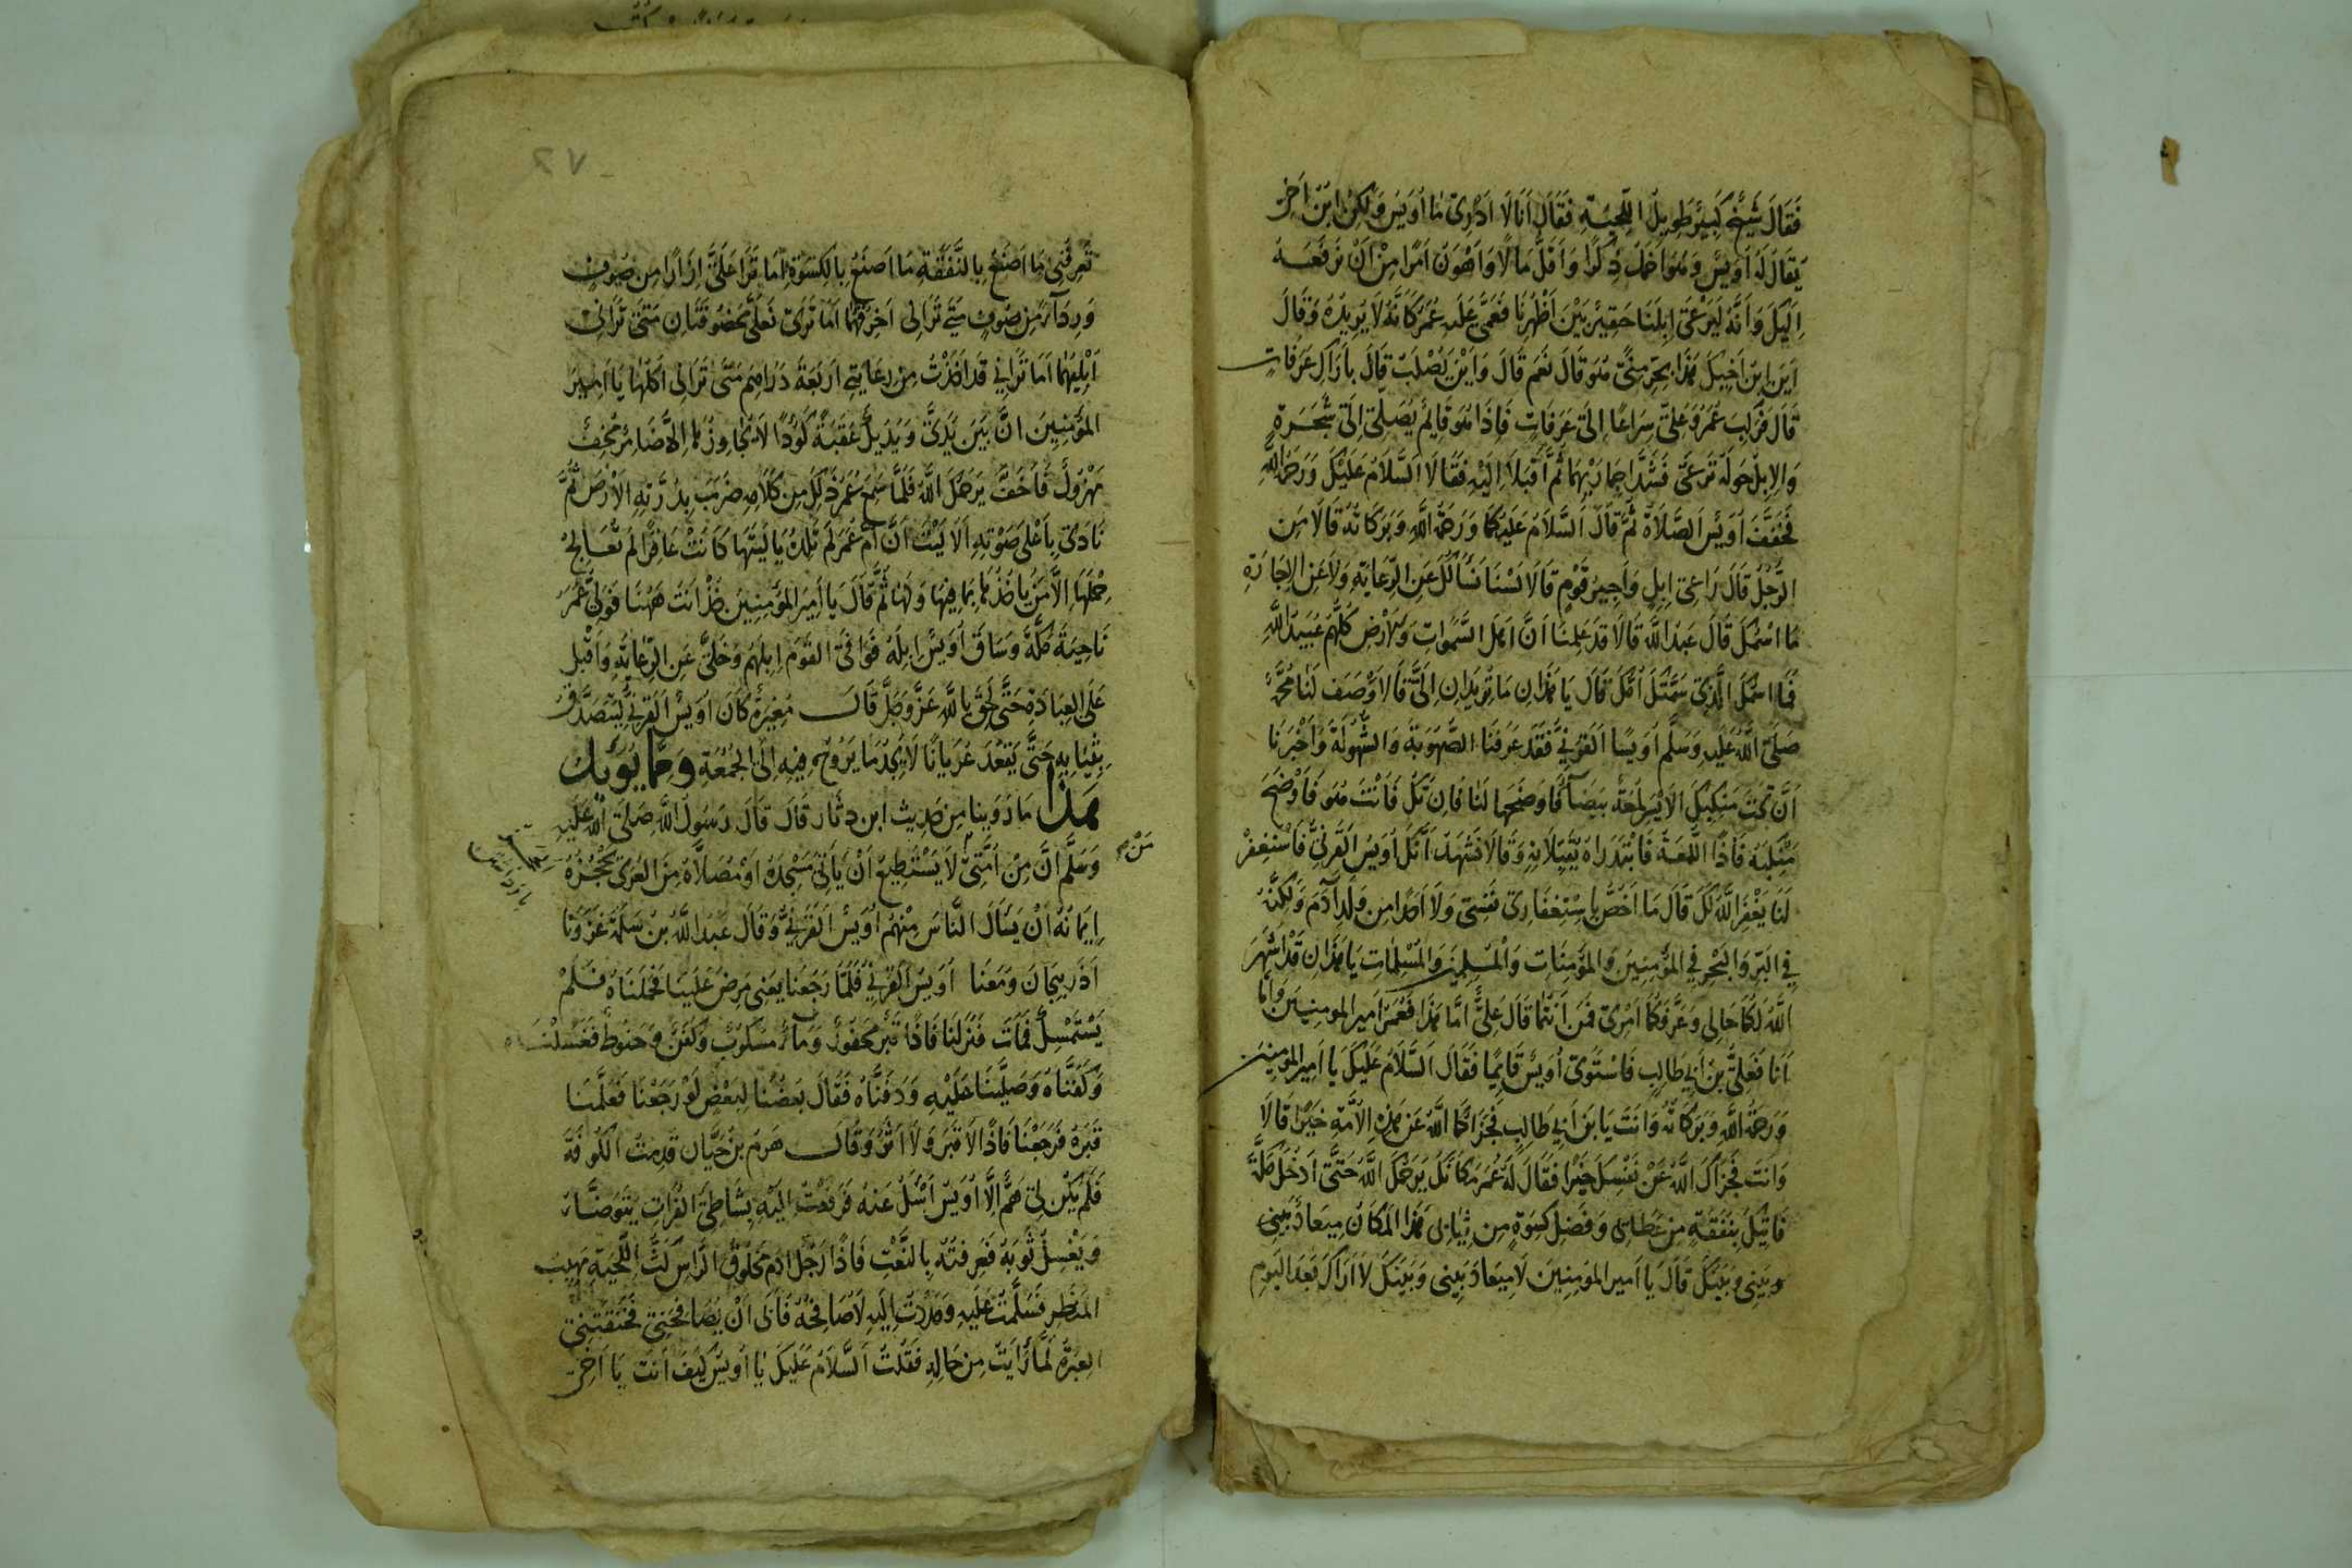 فَقَالَ شَيْخٌ كَبِيْرٌ طَوِيلُ اللِّحْيَةِ فَقَالَ اَنَا لَا اَدْرِيْ مَا اُوَيْسٌ وَلٰكِنْ ابْنُ اَخٍ
يُقَالُ لَهُ اُوَيْسٌ وَهُوَ اَخْمَلُ ذِكْرًا وَاَقَلُّ مَالًا وَاَهْوَنُ اَمْرًا مِنْ اَنْ نَرْفَعَهُ
اِلَيْكَ وَاَنَّهُ لَيَرْعٰى اِبِلَنَا حَقِيْرٌ بَيْنَ اَظْهُرِنَا فَعَمّٰى عَلَيْهِ عُمَرُ كَاَنَّهُ لَا يُرِيْدُهُ وَقَالَ
اَيْنَ ابْنُ اَخِيْكَ هٰذَا بِحَرَمِنَا هُوَ قَالَ نَعَمْ قَالَ وَاَيْنَ يُصَابُ قَالَ بِاَرَاكِ عَرَفَاتٍ
قَالَ فَرَكِبَ عُمَرُ وَعَلِيٌّ سِرَاعًا اِلٰى عَرَفَاتٍ فَاِذَا هُوَ قَايِمٌ يُصَلِّيْ اِلٰى شَجَرَةٍ
وَالْاِبِلُ حَوْلَهُ تَرْعٰى فَشَدَّا حِمَارَيْهِمَا ثُمَّ اَقْبَلَا اِلَيْهِ فَقَالَا اَلسَّلَامُ عَلَيْكَ وَرَحْمَةُ اللّٰهِ
فَخَفَّفَ اُوَيْسٌ الصَّلَاةَ ثُمَّ قَالَ اَلسَّلَامُ عَلَيْكُمَا وَرَحْمَةُ اللّٰهِ وَبَرَكَاتُهُ قَالَا مَنِ
الرَّجُلُ قَالَ رَاعِيْ اِبِلٍ وَاَجِيْرُ قَوْمٍ قَالَا لَسْنَا نَسْاَلُكَ عَنِ الرِّعَايَةِ وَلَا عَنِ الْاِجَارَةِ
مَا اسْمُكَ قَالَ عَبْدُ اللّٰهِ قَالَا قَدْ عَلِمْنَا اَنَّ اَهْلَ السَّمٰوَاتِ وَالْاَرْضِ كُلَّهُمْ عَبِيْدُ اللّٰهِ
فَمَا اسْمُكَ الَّذِيْ سَمَّتْكَ اُمُّكَ قَالَ يَا هٰذَانِ مَا تُرِيْدَانِ اِلَيَّ قَالَا وَصَفَ لَنَا مُحَمَّدٌ
صَلَّى اللّٰهُ عَلَيْهِ وَسَلَّمَ اُوَيْسًا الْقَرَنِيَّ فَقَدْ عَرَفْنَا الصُّهُوْبَةَ وَالشُّهُوْلَةَ وَاَخْبَرَنَا
اَنَّ تَحْتَ مَنْكِبِكَ الْاَيْسَرِ لُمْعَةً بَيْضَاءَ فَاَوْضِحْهَا لَنَا فَاِنْ تَكُ فَاَنْتَ هُوَ فَاَوْضَحَ
مَنْكِبَهُ فَاِذَا اللُّمْعَةُ فَابْتَدَرَاهُ يُقَبِّلَانِهِ وَقَالَا نَشْهَدُ اَنَّكَ اُوَيْسٌ الْقَرَنِيُّ فَاسْتَغْفِرْ
لَنَا يَغْفِرِ اللّٰهُ لَكَ قَالَ مَا اَخُصُّ بِاسْتِغْفَارِيْ نَفْسِيْ وَلَا اَحَدًا مِنْ وَلَدِ آدَمَ وَلٰكِنَّهُ
فِي الْبَرِّ وَالْبَحْرِ فِي الْمُؤْمِنِيْنَ وَالْمُؤْمِنَاتِ وَالْمُسْلِمِيْنَ وَالْمُسْلِمَاتِ يَا هٰذَانِ قَدْ اَشْهَرَ
اللّٰهُ لَكُمَا حَالِيْ وَعَرَّفَكُمَا اَمْرِيْ فَمَنْ اَنْتُمَا قَالَ عَلِيٌّ اَمَّا هٰذَا فَعُمَرُ اَمِيْرُ الْمُومِنِيْنَ وَاَمَّا
اَنَا فَعَلِيُّ بْنُ اَبِيْ طَالِبٍ فَاسْتَوٰى اُوَيْسٌ قَايِمًا فَقَالَ اَلسَّلَامُ عَلَيْكَ يَا اَمِيْرَ الْمُومِنِيْنَ
وَرَحْمَةُ اللّٰهِ وَبَرَكَاتُهُ وَاَنْتَ يَا بْنَ اَبِيْ طَالِبٍ فَجَزَاكُمَا اللّٰهُ عَنْ هٰذِهِ الْاُمَّةِ خَيْرًا قَالَا
وَاَنْتَ فَجَزَاكَ اللّٰهُ عَنْ نَفْسِكَ خَيْرًا فَقَالَ لَهُ عُمَرُ مَكَانَكَ يَرْحَمُكَ اللّٰهُ حَتّٰى اَدْخُلَ مَكَّةَ
فَاٰتِيَكَ بِنَفَقَةٍ مِنْ عَطَائِيْ وَفَضْلِ كِسْوَةٍ مِنْ ثِيَابِيْ هٰذَا الْمَكَانُ مِيْعَادُ بَيْنِيْ
وبَيْنِيْ وَبَيْنَكَ قَالَ يَا اَمِيْرَ الْمُوْمِنِيْنَ لَا مِيْعَادَ بَيْنِيْ وَبَيْنَكَ لَا اَرَاكَ بَعْدَ الْيَوْمِ
٢٧
تَعْرِفُنِيْ مَا اَصْنَعُ بِالنَّفَقَةِ مَا اَصْنَعُ بِالْكِسْوَةِ اَمَا تَرٰا عَلَيَّ اِزَارًا مِنْ صُوْفٍ
وَرِدَآءً مِنْ صُوْفٍ مَتٰى تَرَانِيْ اَخْرِقُهُمَا اَمَا تَرٰى نَعْلَيَّ مَخْصُوْفَتَانِ مَتٰى تَرَانِيْ
اُبْلِيْهِمَا اَمَا تَرَانِيْ قَدْ اَخَذْتُ مِنْ رِعَايَتِيْ اَرْبَعَةَ دَرَاهِمَ مَتٰى تَرَانِيْ اٰكُلُهَا يَا اَمِيْرَ
الْمُؤْمِنِيْنَ اِنَّ بَيْنَ يَدَيَّ وَيَدَيْكَ عَقَبَةً كَؤُدًا لَا يُجَاوِزُهَا اِلَّا ضَامِرٌ مُخِفٌّ
مَهْزُوْلٌ فَاَخِفَّ يَرْحَمُكَ اللّٰهُ فَلَمَّا سَمِعَ عُمَرُ ذٰلِكَ مِنْ كَلَامِهِ ضَرَبَ بِدُرَّتِهِ الْاَرْضَ ثُمَّ
نَادٰى بِاَعْلٰى صَوْتِهِ اَلَا لَيْتَ اَنَّ اُمَّ عُمَرَ لَمْ تَلِدْهُ يَا لَيْتَهَا كَانَتْ عَاقِرًا لَمْ تُعَالِجْ
حَمْلَهَا اِلَّا مَنْ يَاخُذُهَا بِمَا فِيْهَا وَلَهَا ثُمَّ قَالَ يَا اَمِيْرَ الْمُؤْمِنِيْنَ خُذْ اَنْتَ هٰهُنَا فَوَلّٰى عُمَرُ
نَاحِيَةَ مَكَّةَ وَسَاقَ اُوَيْسٌ اِبِلَهُ فَوَافَى الْقَوْمَ اِبِلَهُمْ وَخَلّٰى عَنِ الرِّعَايَةِ وَاَقْبَلَ
عَلَى الْعِبَادَةِ حَتّٰى لَحِقَ بِاللّٰهِ عَزَّ وَجَلَّ قَالَ مُغِيْرَةُ كَانَ اُوَيْسٌ الْقَرَنِيُّ لَيَتَصَدَّقُ
بِثِيَابِهِ حَتّٰى يَقْعُدَ عُرْيَانًا لَا يَجِدُ مَا يَرُوْحُ فِيْهِ اِلَى الْجُمُعَةِ وَمِمَّا يُوَيِّدُ
هٰذَا مَا رُوِيْنَا مِنْ حَدِيْثِ ابن دثار قَالَ قَالَ رَسُولُ اللّٰهِ صَلَّى اللّٰهُ عَلَيْهِ
وَسَلَّمَ اِنَّ مِنْ اُمَّتِيْ لَا يَسْتَطِيْعُ اَنْ يَاْتِيَ مَسْجِدَهُ اَوْ مُصَلَّاهُ مِنَ الْعُرْيِ يَحْجُزُهُ
مَنْ
اِيْمَانُهُ اَنْ يَسْاَلَ النَّاسَ مِنْهُمْ اُوَيْسٌ الْقَرَنِيُّ وَقَالَ عَبْدُ اللّٰهِ بْنُ سَلَمَةَ غَزَوْنَا
اَذَرْبِيْجَانَ وَمَعَنَا اُوَيْسٌ الْقَرَنِيُّ فَلَمَّا رَجَعْنَا يَعْنِيْ مَرِضَ عَلَيْنَا فَحَمَلْنَاهُ فَلَمْ
يَسْتَمْسِكْ فَمَاتَ فَنَزَلْنَا فَاِذَا قَبْرٌ مَحْفُوْرٌ وَمَاءٌ مَسْكُوْبٌ وَكَفَنٌ وَحَنُوْطٌ فَغَسَلْنَاهُ
وَكَفَّنَّاهُ وَصَلَّيْنَا عَلَيْهِ وَدَفَنَّاهُ فَقَالَ بَعْضُنَا لِبَعْضٍ لَوْ رَجَعْنَا فَعَلَّمْنَا
قَبْرَهُ فَرَجَعْنَا فَاِذًا لَا قَبْرَ وَلَا اَثَرَ وَقَالَ هَرِمُ بْنُ حَيَّان قَدِمْتُ الْكُوْفَةَ
فَلَمْ يَكُنْ لِيْ هَمٌّ اِلَّا اُوَيْسٌ اَسْئَلُ عَنْهُ فَدُفِعْتُ اِلَيْهِ بِشَاطِئِ الْفُرَاتِ يَتَوَضَّاُ
وَيَغْسِلُ ثَوْبَهُ فَعَرَفْتُهُ بِالنَّعْتِ فَاِذَا رَجُلٌ اٰدَمُ مَحْلُوْقُ الرَّاسِ كَثُّ اللِّحْيَةِ مَهِيْبُ
الْمَنْظَرِ فَسَلَّمْتُ عَلَيْهِ وَمَدَدْتُ اِلَيْهِ لِاُصَافِحَهُ فَاَبٰى اَنْ يُصَافِحَنِيْ فَخَنَقَتْنِيْ
الْعَبْرَةُ لَمَّا رَاَيْتُ مِنْ حَالِهِ فَقُلْتُ اَلسَّلَامُ عَلَيْكَ يَا اُوَيْسُ كَيْفَ اَنْتَ يَا اَخِيْ